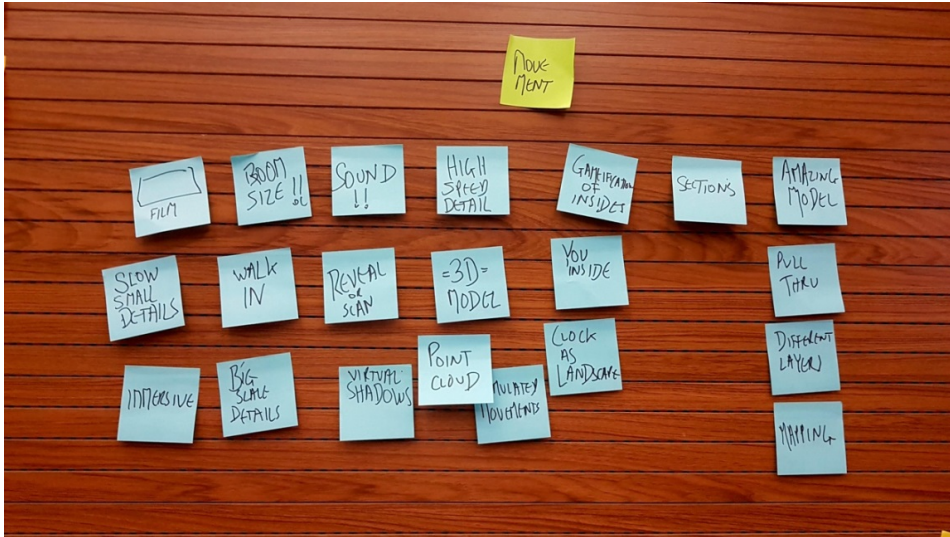 MOVE
MENT
FILM
ROOM
SIZE!!
SOUND
!!
HIGH
SPEED
DETAIL
GAMIFICATION
OF
INSIDES
SECTIONS
AMAZING
MODEL
SLOW
SMALL
DETAILS
WALK
IN
REVEAL
OR
SCAN
=3D=
MODEL
YOU
INSIDE
PULL
THRU
IMMERSIVE
BIG
SCALE
DETAILS
VIRTUAL
SHADOWS
POINT
CLOUD
MULATED
MOVEMENTS
CLOCK
AS
LANDSCAPE
DIFFERENT
LAYERS
MAPPING